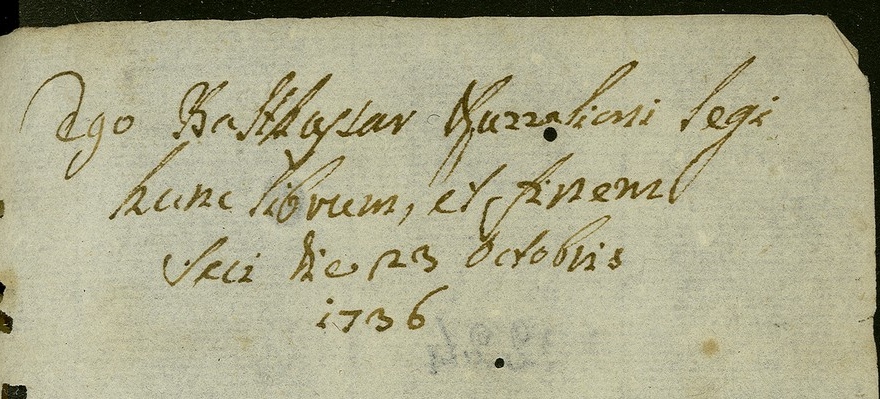 Ego Balthassar legi
hunc librum, et finem
feci die 23 Octobris
1736